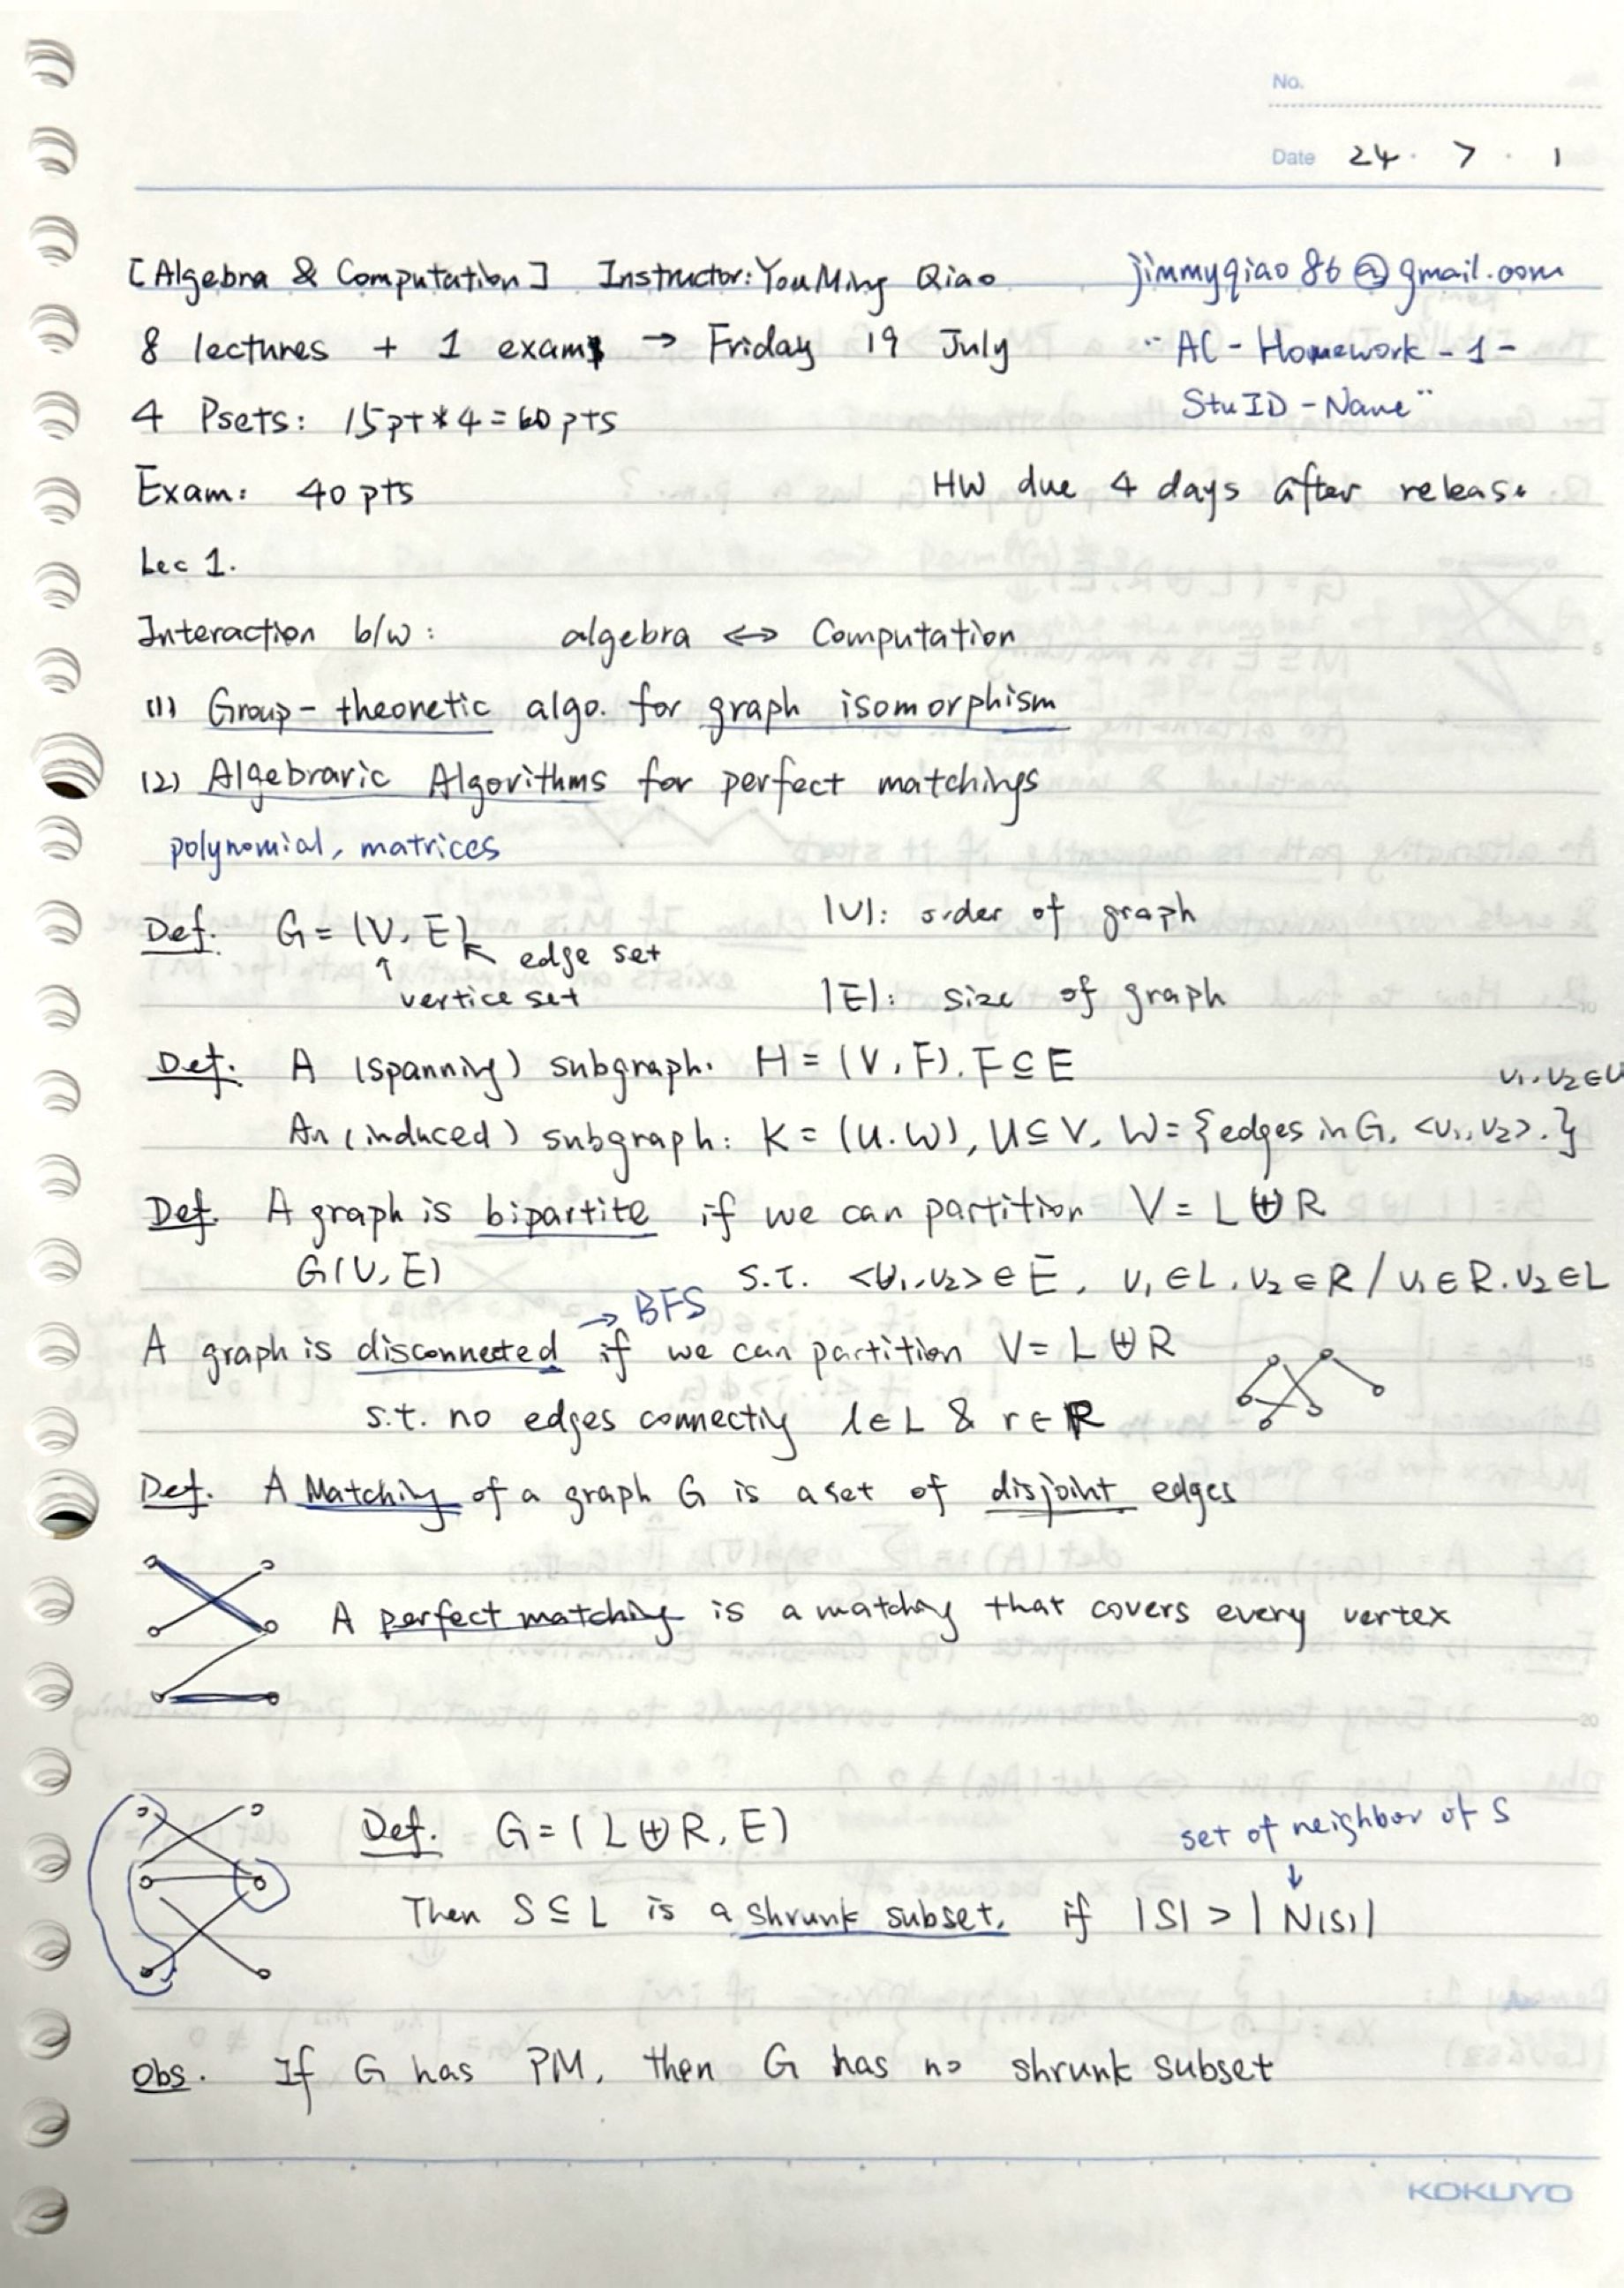 No.
Date 24. 7. 1
[Algebra & Computation] Instructor: YouMing Qiao jimmyqiao86@gmail.com
8 lectures + 1 exam → Friday 19 July "AC - Homework - 1 -
StuID - Name"
4 Psets: 15pt*4=60pts
Exam: 40pts HW due 4 days after release
Lec 1.
Interaction b/w: algebra ⟺ Computation
(1) Group-theoretic algo. for graph isomorphism
(2) Algebraric Algorithms for perfect matchings
polynomial, matrices
Def. G = (V, E) edge set |V|: order of graph
↑ vertice set |E|: size of graph
Def. A (spanning) subgraph. H = (V, F). F ⊆ E
v1, v2 ∈ U
An (induced) subgraph: K = (U.W), U ⊆ V, W = {edges in G, <v1,v2>.}
Def. A graph is bipartite if we can partition V = L ⊎ R
G(V, E) s.t. <v1,v2> ∈ E, v1 ∈ L. v2 ∈ R / v1 ∈ R. v2 ∈ L
→ BFS
A graph is disconnected if we can partition V = L ⊎ R
s.t. no edges connecting l ∈ L & r ∈ R
Def. A Matching of a graph G is a set of disjoint edges
A perfect matching is a matching that covers every vertex
Def. G = (L ⊎ R, E) set of neighbor of S
↓
Then S ⊆ L is a shrunk subset, if |S| > |N(S)|
Obs. If G has PM, then G has no shrunk subset
KOKUYO